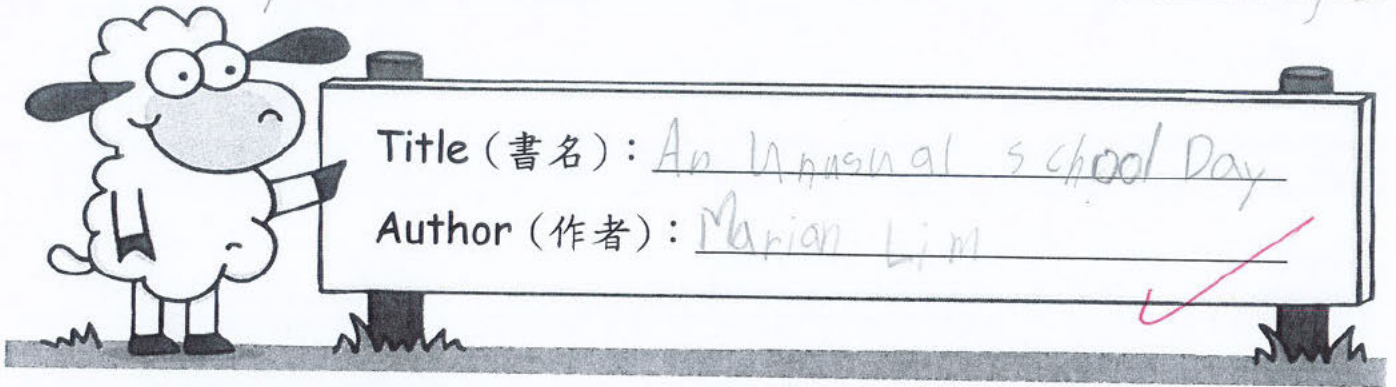 Title (書名): An Unusual school Day
Author (作者): Marian Lim